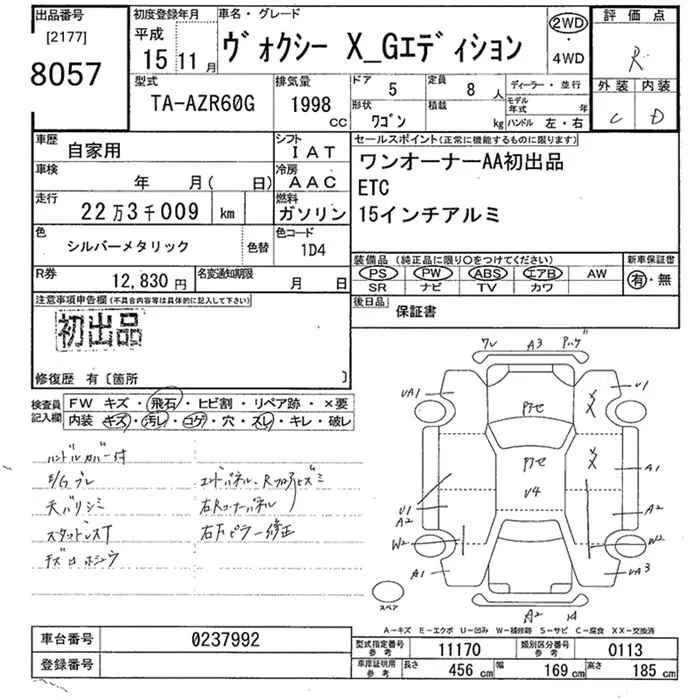 出品番号
[2177]
8057
初度登録年月
平成
15 11月
車名・グレード
ヴォクシー X_Gエディション
2WD
・
4WD
評価点
R
外装 内装
C D
型式
TA-AZR60G
排気量
1998 CC
ドア
5
定員
8 人
形状
ワゴン
積載
kg
ディーラー・並行
モデル年式 年
ハンドル 左・右
車歴
自家用
シフト
IAT
車検
年 月( 日)
冷房
AAC
走行
22万3千009 km
燃料
ガソリン
色
シルバーメタリック
色替
色コード
1D4
R券
12,830円
名変通知期限
月 日
セールスポイント(正常に機能するものに限ります)
ワンオーナーAA初出品
ETC
15インチアルミ
装備品(純正品に限り○をつけてください)
PS PW ABS エアB AW
SR ナビ TV カワ
新車保証書
有・無
後日品
保証書
注意事項申告欄(不具合内容等は具体的に記入して下さい)
初出品
修復歴 有〔箇所 〕
検査員記入欄
FW キズ・飛石・ヒビ割・リペア跡・×要
内装 キズ・汚レ・コゲ・穴・スレ・キレ・破レ
ハンドルカバー付
E/Gブレ
天バリシミ
スタッドレスT
エンドパネル、Rフロアヒズミ
右Rコーナーパネル
右Fピラー修正
ワレ A3
UA1
U1
アセ
XX
アセ
XX
A1
U4
U1
A2
A2
W2
W2
A1
UA3
A2
スペア
A－キズ E－エクボ U－凹み W－補修跡 S－サビ C－腐食 XX－交換済
車台番号
0237992
登録番号
型式指定番号
参考
11170
類別区分番号
参考
0113
車庫証明用
参考
長さ 456 cm
幅 169 cm
高さ 185 cm